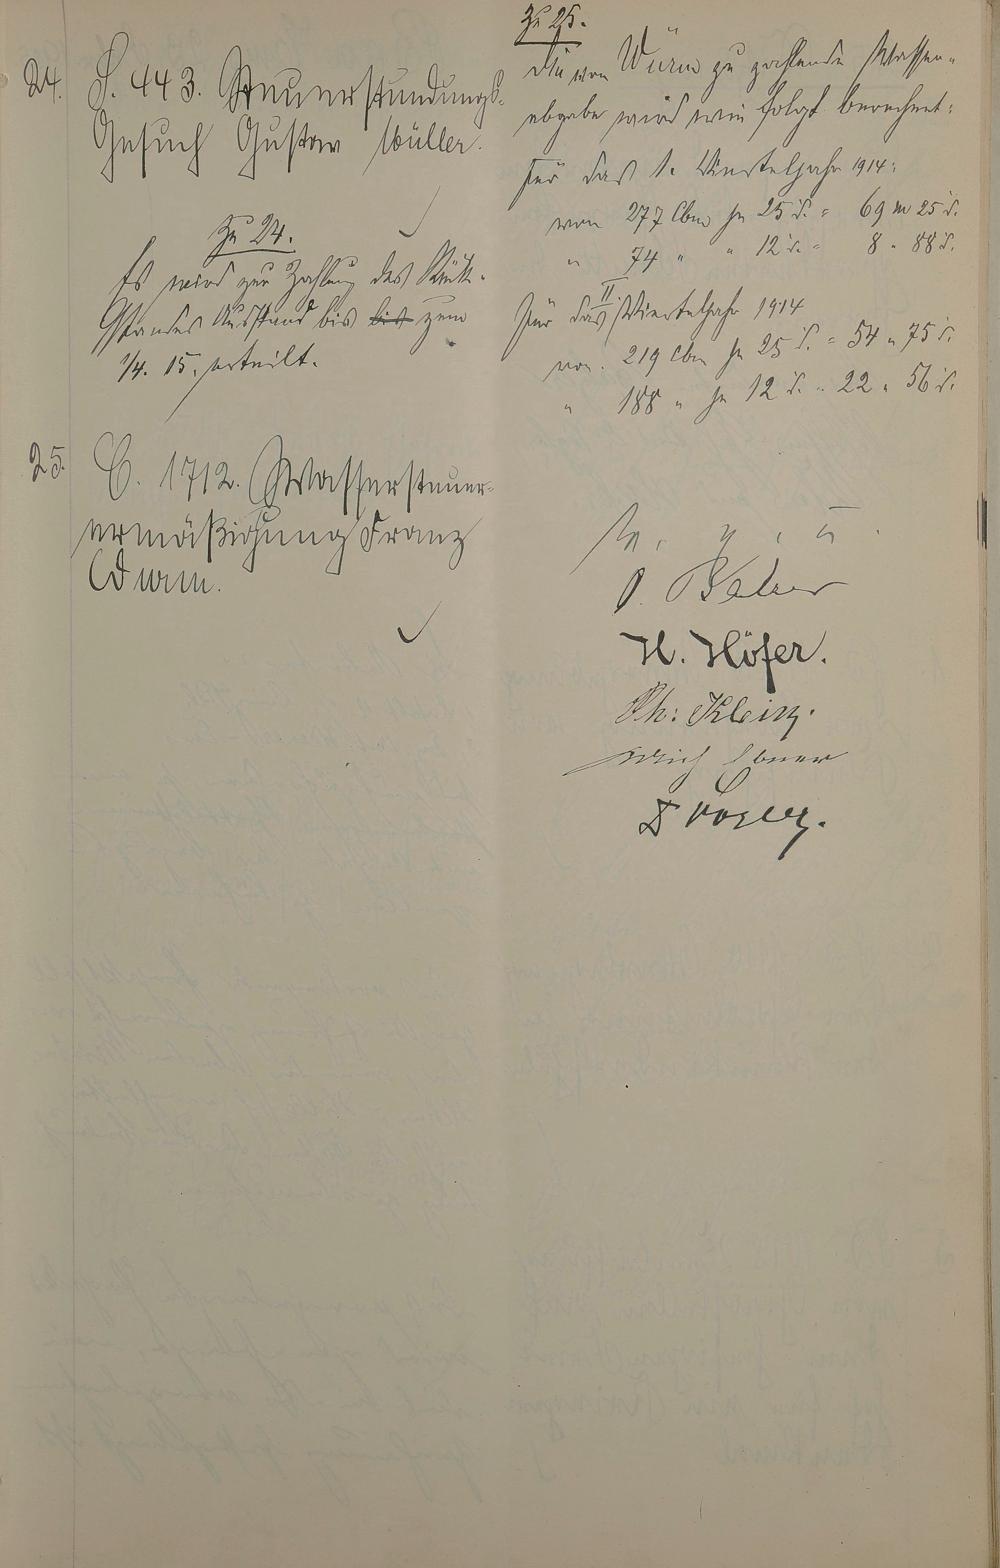 24. S. 443. Steuerstundungs-
Gesuch Gustav Müller.
Zu 24.
Es wird zur Zahlung des Rück-
standes Ausstand bis bis zum
1/4. 15. erteilt.
25. C. 1712. Wassersteuer-
ermäßigung Franz
Wurm.
Zu 25.
Die von Würm zu zahlende Wasser-
abgabe wird wie folgt berechnet:
für das 1. Vierteljahr 1914:
von 277 cbm je 25 d. = 69 M 25 d.
" 74 " " 12 d. = 8 " 88 d.
für das II Vierteljahr 1914
von 219 cbm je 25 d. = 54 " 75 d.
" 188 " je 12 d. " 22 " 56 d.
v. g. u.
H. Höfer.
Ph: Klein.